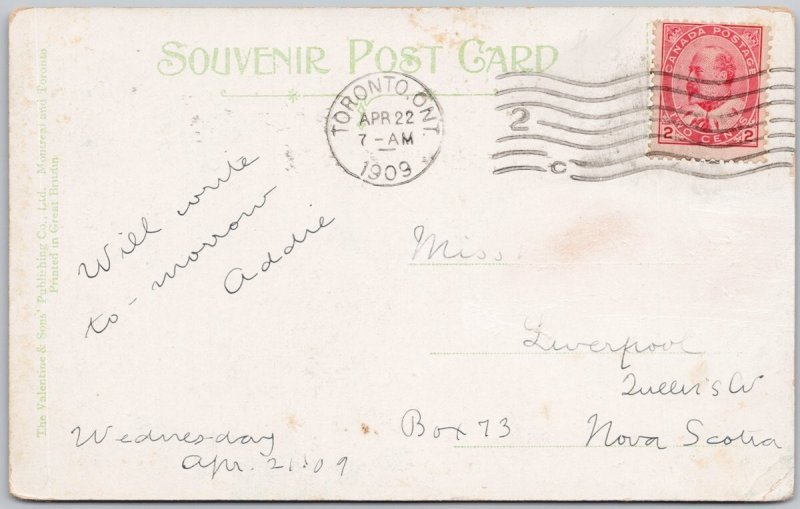 SOUVENIR POST CARD
The Valentine & Sons' Publishing Co., Ltd. Montreal and Toronto
Printed in Great Britain
TORONTO, ONT.
APR 22
7 - AM
1909
2
c
CANADA POSTAGE
2 TWO CENTS 2
Will write
to-morrow
Addie
Wednesday
Apr. 21. 09
Miss
Liverpool
Box 73
Nova Scotia